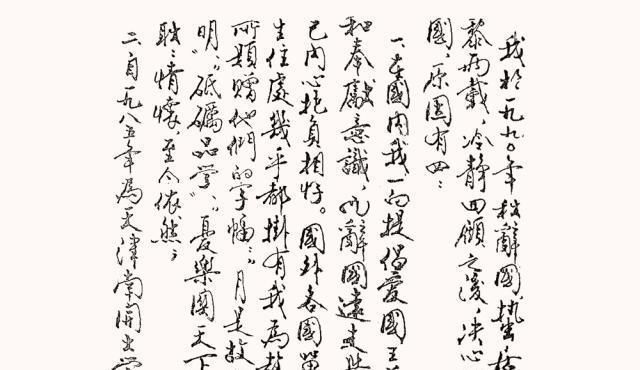 我於一九九〇年秋辭國蟄居
黎兩載，冷靜回顧之後，決心
國，原因有四：
一、在國内我一向提倡愛國主
和奉獻意識，此辭國遠走
己内心抱負相悖。國外各國留
生住處幾乎都掛有我為
所題贈他們的字幅："月是故
明"；"砥礪品學"；"憂樂關天下
耿耿情懷，至今依然；
二、自一九八五年為天津南開大學